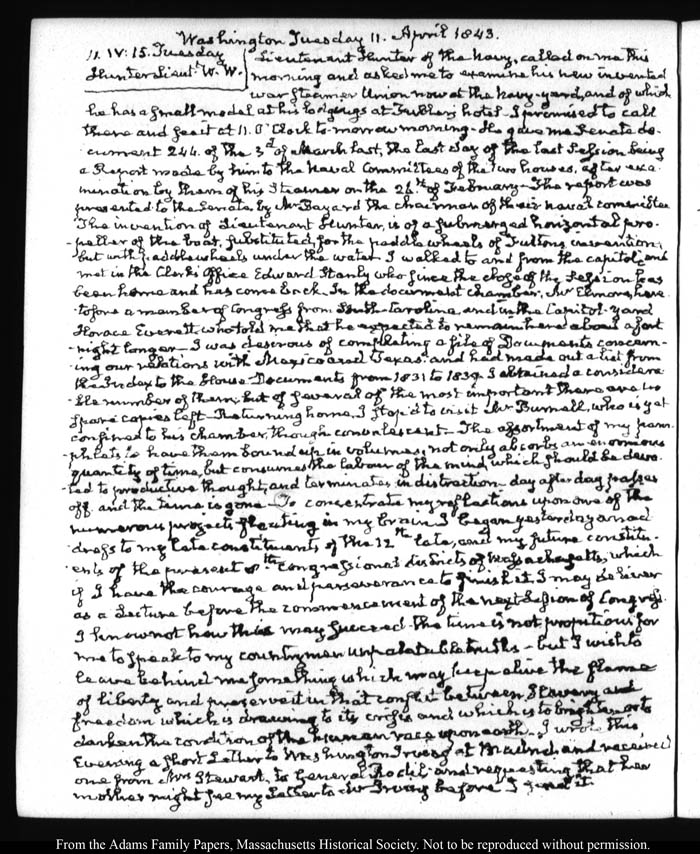 Washington Tuesday 11. April 1843.
11. IV: 15. Tuesday
Hunter Lieut. W. W.
Lieutenant Hunter of the Navy, called on me this
morning and asked me to examine his new invented
war Steamer Union now at the Navy-yard, and of which
he has a small model at his lodgings at Fuller's hotel. I promised to call
there and see it at 11. O'Clock to-morrow morning. He gave me Senate do-
cument 244. of the 3d of March last, the last day of the last Session being
a Report made by him to the Naval Committees of the two houses, after exa-
mination by them of his Steamer on the 26th of February. The report was
presented to the Senate by Mr Bayard the chairman of their naval committee
The invention of Lieutenant Hunter, is of a submerged horizontal pro-
-peller of the boat, substituted, for the paddle wheels of Fulton's invention,
but with paddlewheels under the water. I walked to and from the capitol, and
met in the Clerk's Office Edward Stanly who since the close of the Session has
been home and has come back. In the document chamber, Mr Elmore, here-
tofore a member of Congress from South-Carolina, and in the Capitol-yard
Horace Everett who told me that he expected to remain here about a fort-
-night longer. I was desirous of completing a file of Documents concern-
ing our relations with Mexico and Texas, and had made out a list from
the Index to the House-Documents from 1831 to 1839. I obtained a considera-
-ble number of them; but of several of the most important there are no
spare copies left. Returning home, I stop'd to visit Mr Burnell, who is yet
confined to his chamber, though convalescent. The assortment of my pam-
-phlets to have them bound up in volumes, not only absorbs an enormous
quantity of time, but consumes the labour of the mind, which should be devo-
-ted to productive thought, and terminates in distraction. day after day passes
off and the time is gone. To concentrate my reflections upon one of the
numerous projects floating in my brain I began yesterday an ad-
dress to my late constituents of the 12th late, and my future constitu-
-ents of the present 8th Congressional districts of Massachusetts, which
if I have the courage and perseverance to finish it I may deliver
as a Lecture before the commencement of the next Session of Congress.
I know not how this may succeed. the time is not propitious for
me to speak to my countrymen unpalatable truths - but I wish to
leave behind me something which may keep alive the flame
of liberty and preserve it in that conflict between Slavery and
freedom which is drawing to its crisis and which is to brighten or to
darken the condition of the human race upon earth. I wrote this
Evening a short Letter to Washington Irving at Madrid, and received
one from Mrs Stewart, to General Rodil, and requesting that her
mother might see my Letter to Mr Irving before I send it.
From the Adams Family Papers, Massachusetts Historical Society. Not to be reproduced without permission.